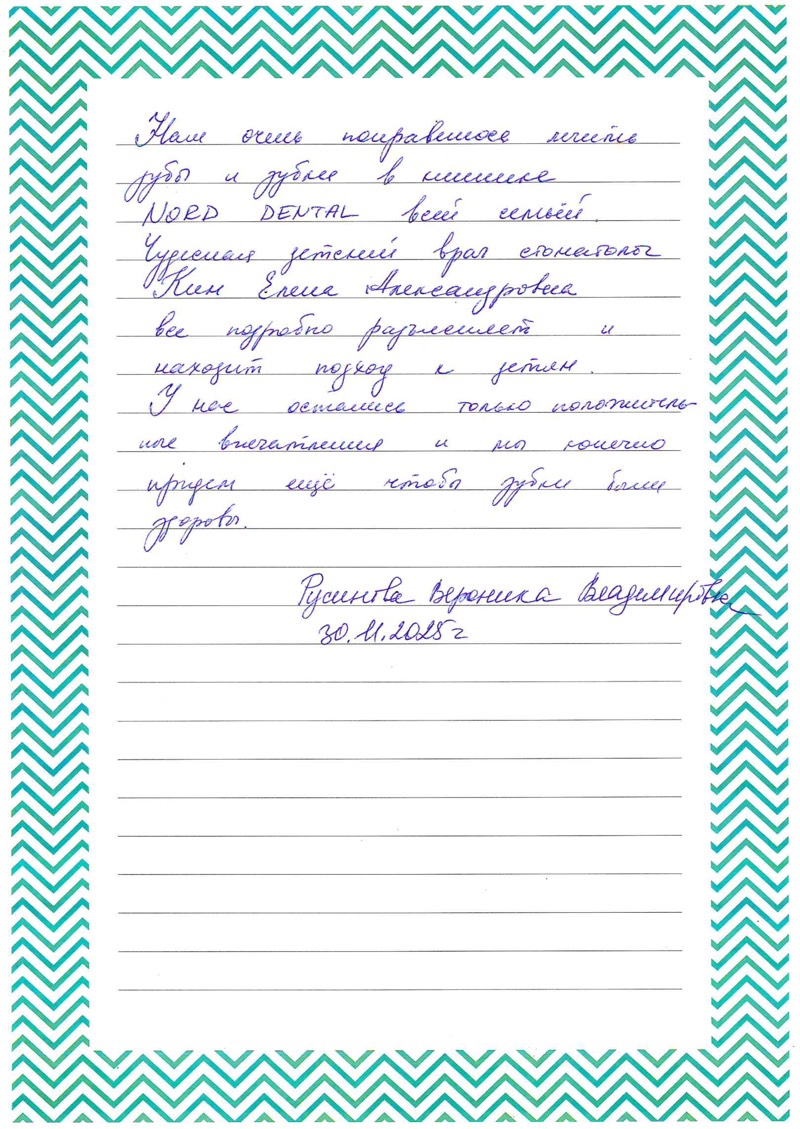 Нам очень понравилось лечить
зубы и зубки в клинике
NORD DENTAL всей семьёй.
Чудесная детский врач стоматолог
Ким Елена Александровна
все подробно разъясняет и
находит подход к детям.
У нас остались только положитель-
ные впечатления и мы конечно
придем ещё чтобы зубки были
здоровы.
Русинова Вероника Владимировна
30.11.2025 г